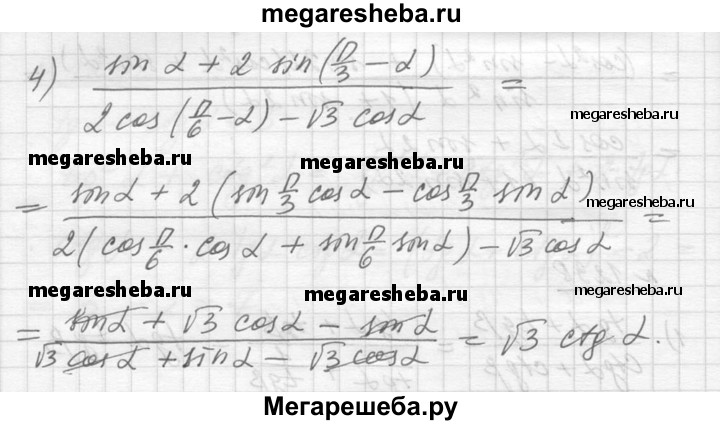 megaresheba.ru
4) (sin α + 2 sin(π/3 − α)) / (2 cos(π/6 − α) − √3 cos α) =
megaresheba.ru
megaresheba.ru
megaresheba.ru
= (sin α + 2 (sin π/3 cos α − cos π/3 sin α)) / (2(cos π/6 · cos α + sin π/6 sin α) − √3 cos α) =
megaresheba.ru
megaresheba.ru
megaresheba.ru
= (sin α + √3 cos α − sin α) / (√3 cos α + sin α − √3 cos α) = √3 ctg α.
Мегарешеба.ру